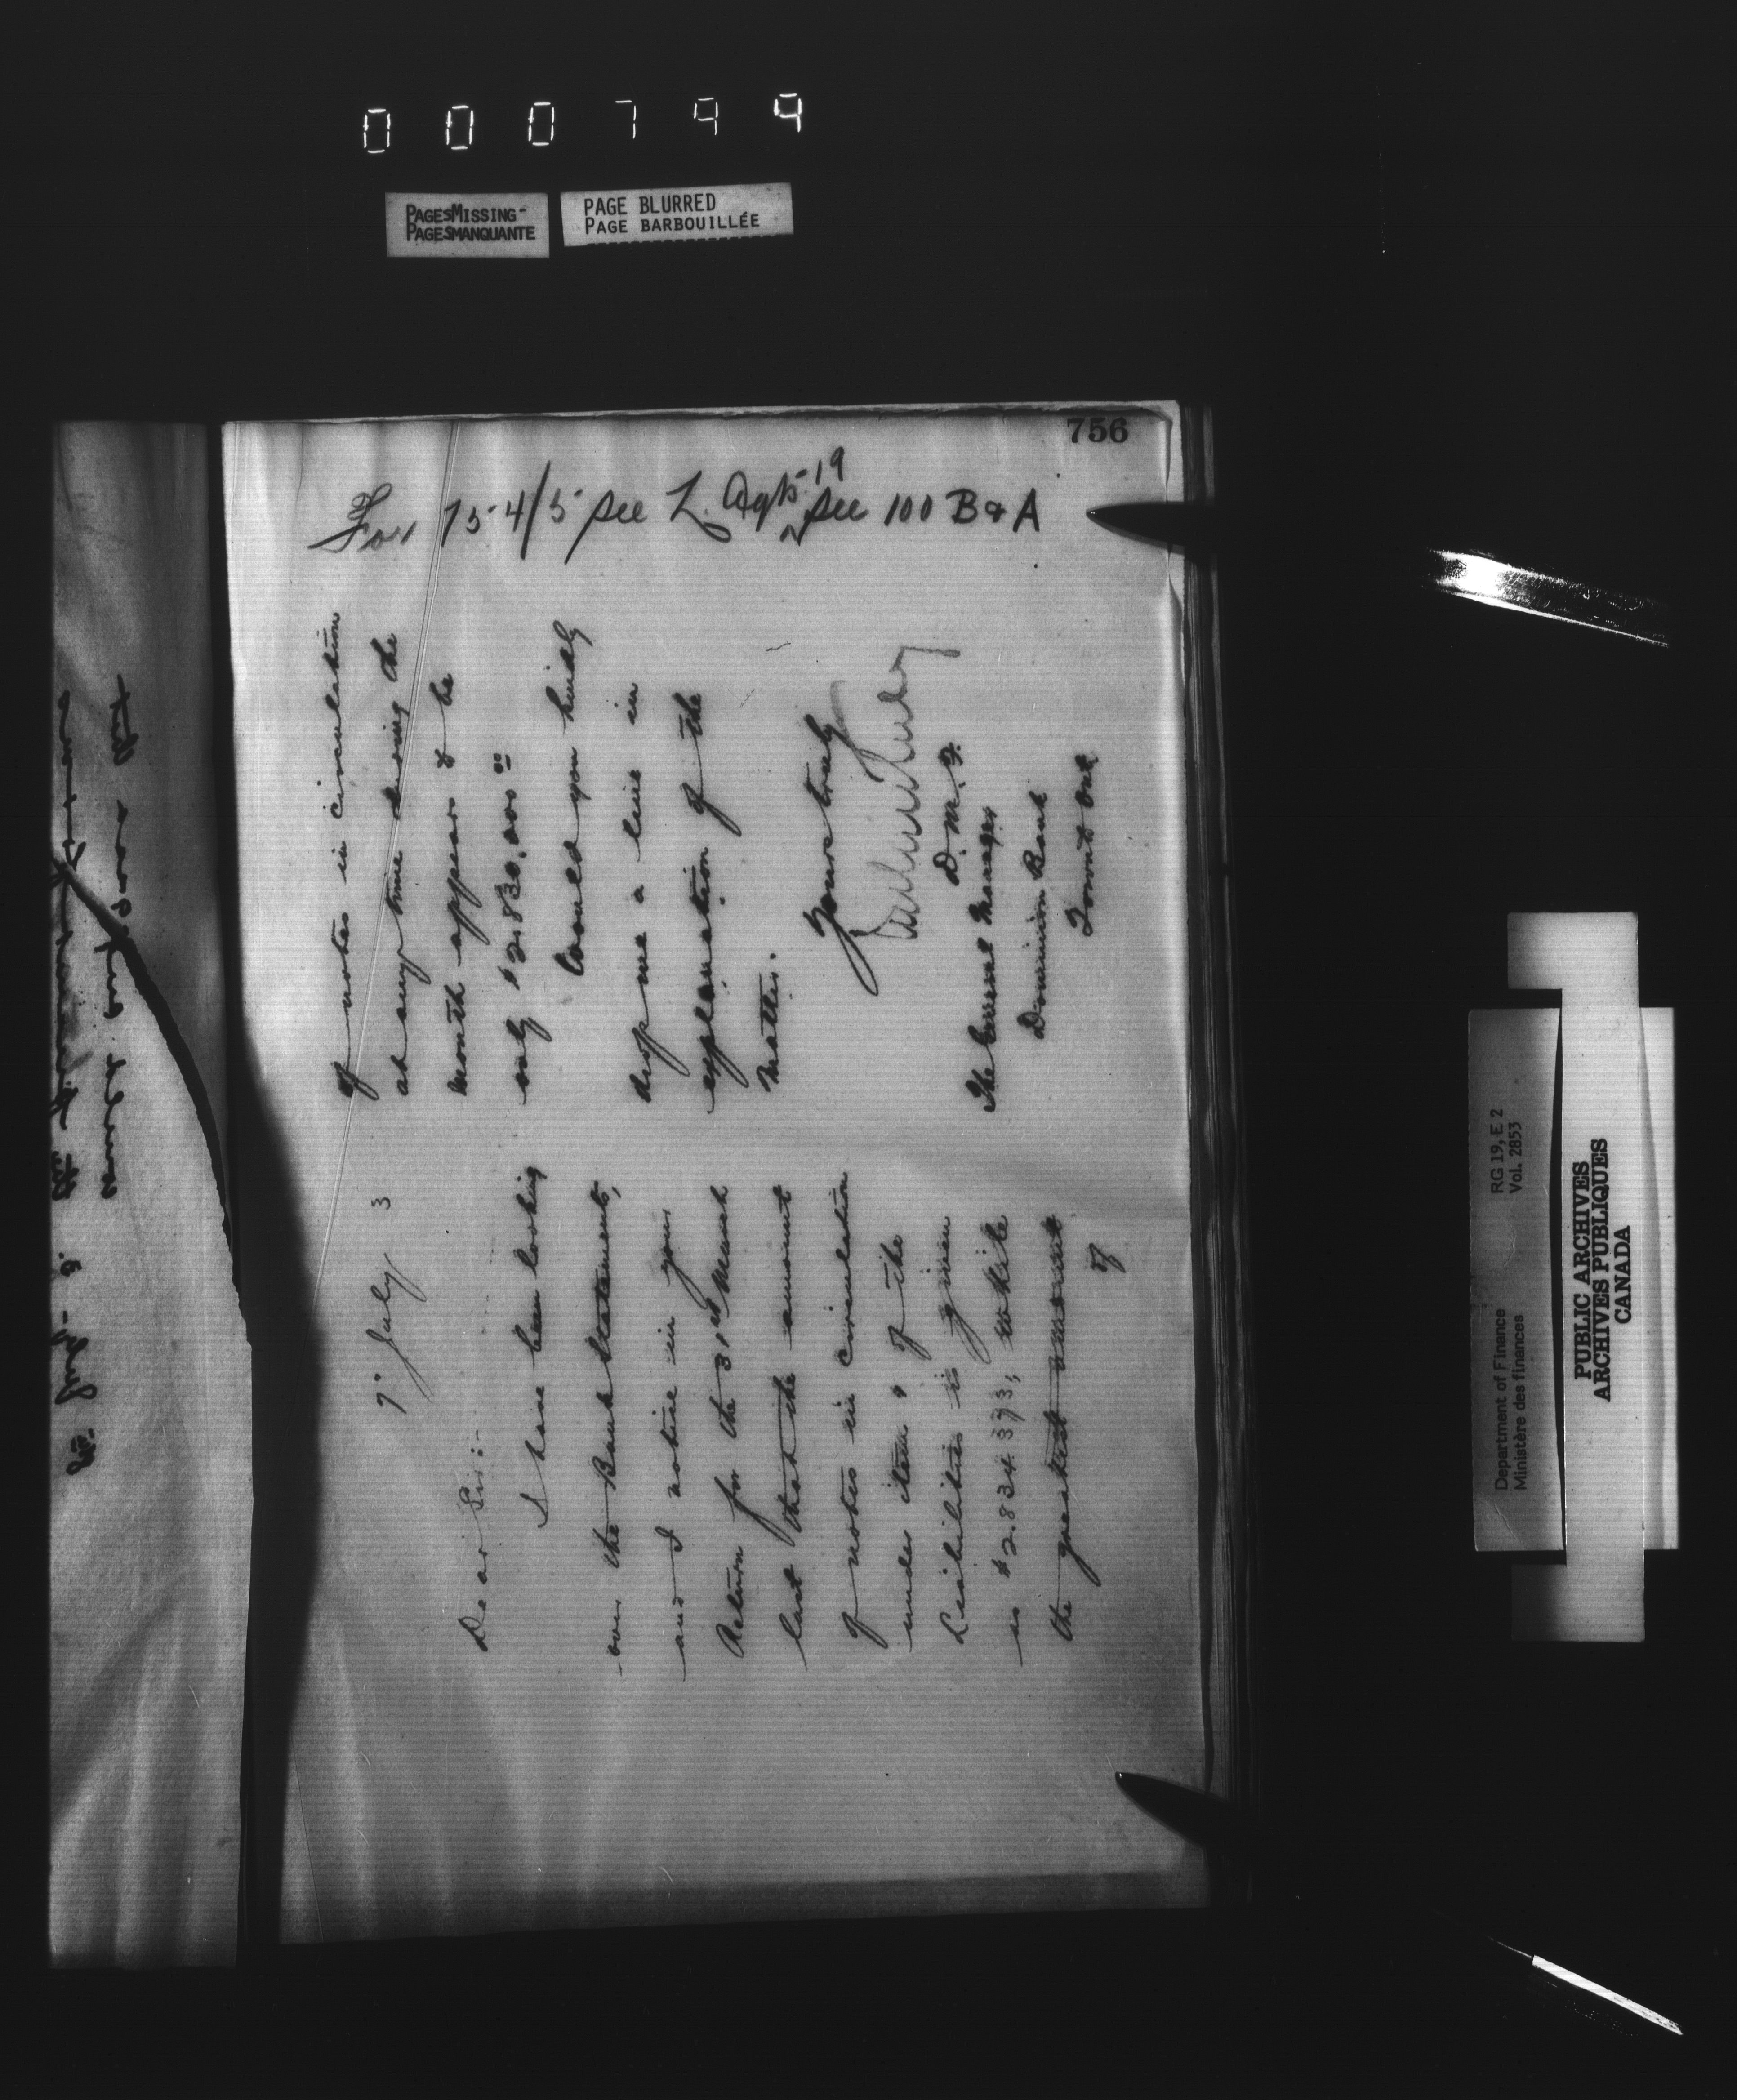 000799
PAGES MISSING-
PAGES MANQUANTE
PAGE BLURRED
PAGE BARBOUILLÉE
756
For 754/5 see L. Agts 19 see 100 B & A
7" July 3
Dear Sir:-
I have been looking
over the Bank Statements,
and I notice in your
Return for the 31st March
last that the amount
of notes in circulation
under item 1 of the
Liabilities is given
as $2.834.373, while
the greatest amount
of
of notes in circulation
at any time during the
month appears to be
only $2.830,000.00
Could you kindly
drop me a line in
explanation of the
matter.
Yours truly
D.M.F.
The General Manager
Dominion Bank
Toronto Ont.
Department of Finance
Ministère des finances
RG 19, E 2
Vol. 2853
PUBLIC ARCHIVES
ARCHIVES PUBLIQUES
CANADA